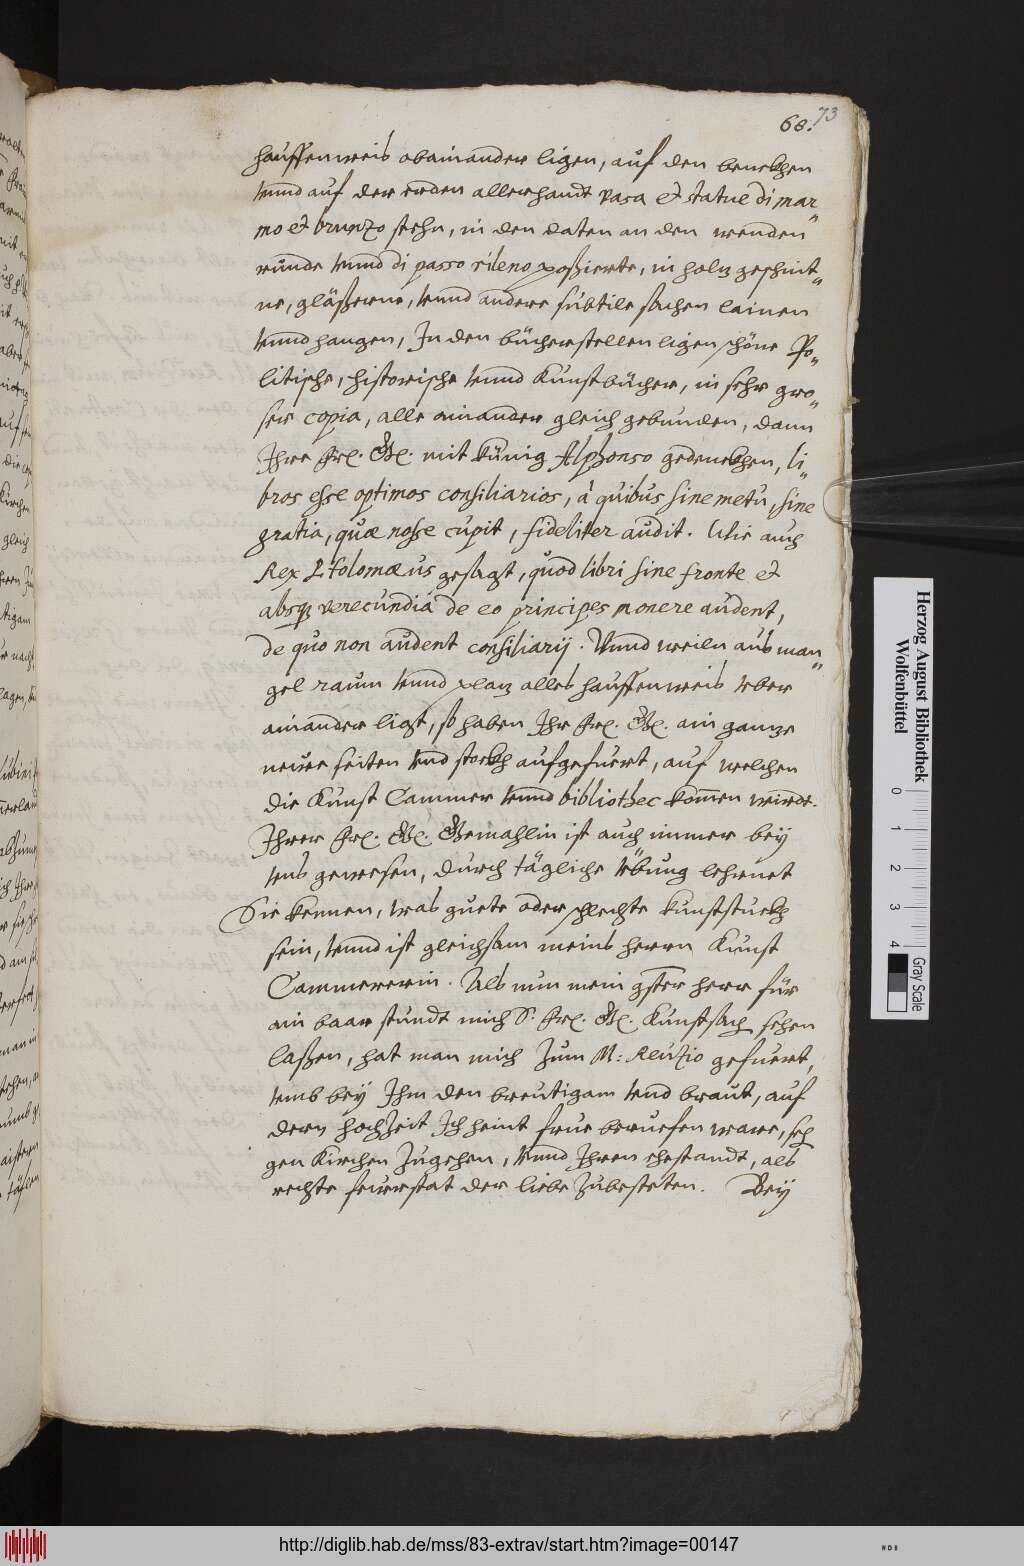 68. 73
hauffenweis obainander ligen, auf den benckhen
vnnd auf der erden allerhandt vasa et statue di mar„
mo et brunzo stehn, in den daten an den wenden
runde vnnd di passo rileuo possierte, in holz geschnit„
ne, gläßerne, vnnd andere subtile sachen lainen
vnnd hangen, In den bücherstellen ligen schöne Po„
litische, historische vnnd Kunstbücher, in sehr gro„
ser copia, alle ainander gleich gebunden, dann
Ihre Frl. Gl. mit Künig Alphonso gedenckhen, li„
bros esse optimos consiliarios, à quibus sine metu, sine
gratia, quæ nosse cupit, fideliter audit. Wie auch
Rex Ptolomæus gesagt, quod libri sine fronte et
absq verecundiâ de eo principes monere audent,
de quo non audent consiliarij. Vnnd weiln aus man„
gel raum vnnd plaz alles hauffenweis vber
ainander ligt, so haben Ihr Frl. Gl. ain ganze
neue seiten vnd stockh aufgefuert, auf welchen
die Kunst Cammer vnnd bibliothec kommen wirdt.
Ihrer Frl. Gl. Gemahlin ist auch immer bey
vns gewesen, durch tägliche vbung lehrnet
Sie kennen, was guete oder schlechte kunststuckh
sein, vnnd ist gleichsam meins herrn Kunst
Cammererin. Als nun mein gster herr für
ain baar stundt mich S. Frl. Gl. Kunstsach sehen
laßen, hat man mich zum M: Aluisio gefuert,
vmb bey Ihm den breutigam vnd braut, auf
dern hochzeit Ich heint frue beruefen ware, seh
gen Kirchen zugehen, vnnd Ihren ehestandt, als
rechte feuerstat der liebe zubesteten. Bey
Herzog August Bibliothek
Wolfenbüttel
0 1 2 3 4
Gray Scale
http://diglib.hab.de/mss/83-extrav/start.htm?image=00147
WDB